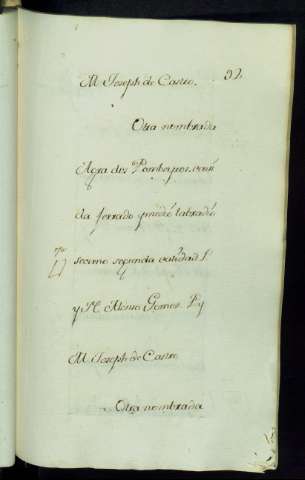 32.
M. Joseph de Castro.
Otra nombrada
Agra dos Pombeyros
da ferrado y medio labradio
secano segunda calidad L.
y P. Alonso Gomez P. y
M. Joseph de Castro
Otra nombrada